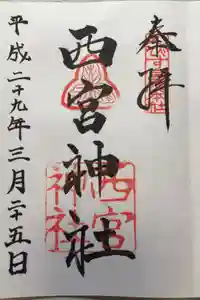 奉拝
西宮神社
平成二十九年三月二十五日
西宮
神社